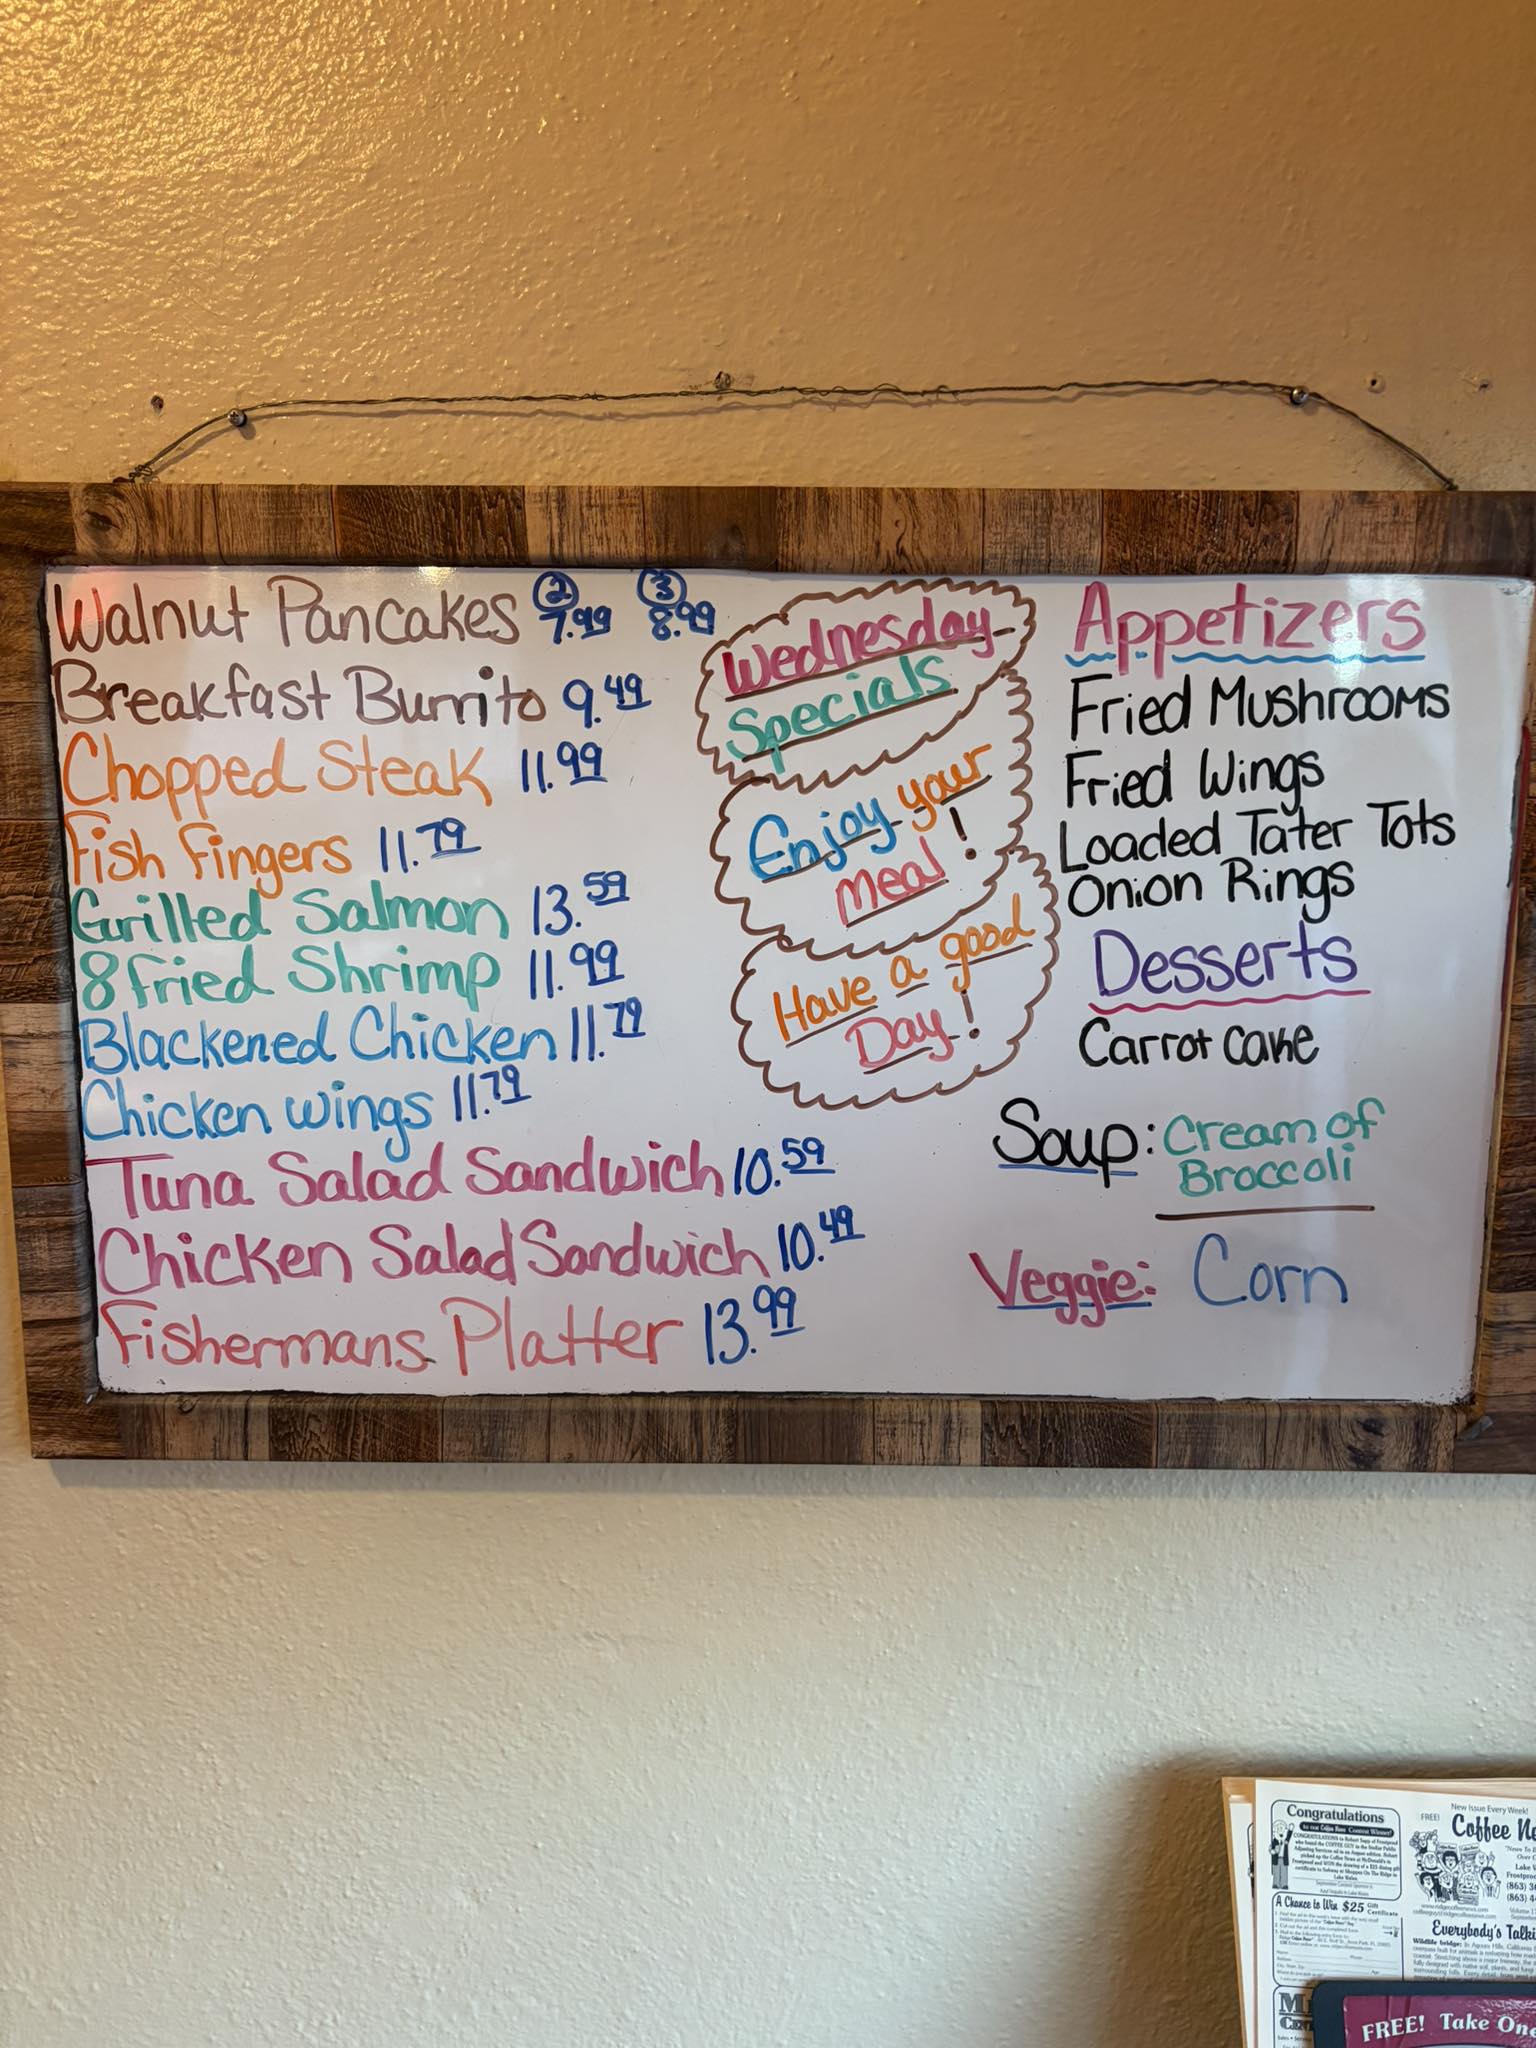 Walnut Pancakes ② 7.99 ③ 8.99
Breakfast Burrito 9.49
Chopped Steak 11.99
Fish Fingers 11.79
Grilled Salmon 13.59
8 Fried Shrimp 11.99
Blackened Chicken 11.79
Chicken wings 11.79
Tuna Salad Sandwich 10.59
Chicken Salad Sandwich 10.49
Fishermans Platter 13.99
Wednesday
Specials
Enjoy your
meal!
Have a good
Day!
Appetizers
Fried Mushrooms
Fried Wings
Loaded Tater Tots
Onion Rings
Desserts
Carrot cake
Soup: Cream of
Broccoli
Veggie: Corn
Congratulations
to our Coffee News Contest Winner!
A Chance to Win $25 Gift
Certificate
New Issue Every Week!
FREE!
Coffee Ne
Everybody's Talki
FREE! Take One